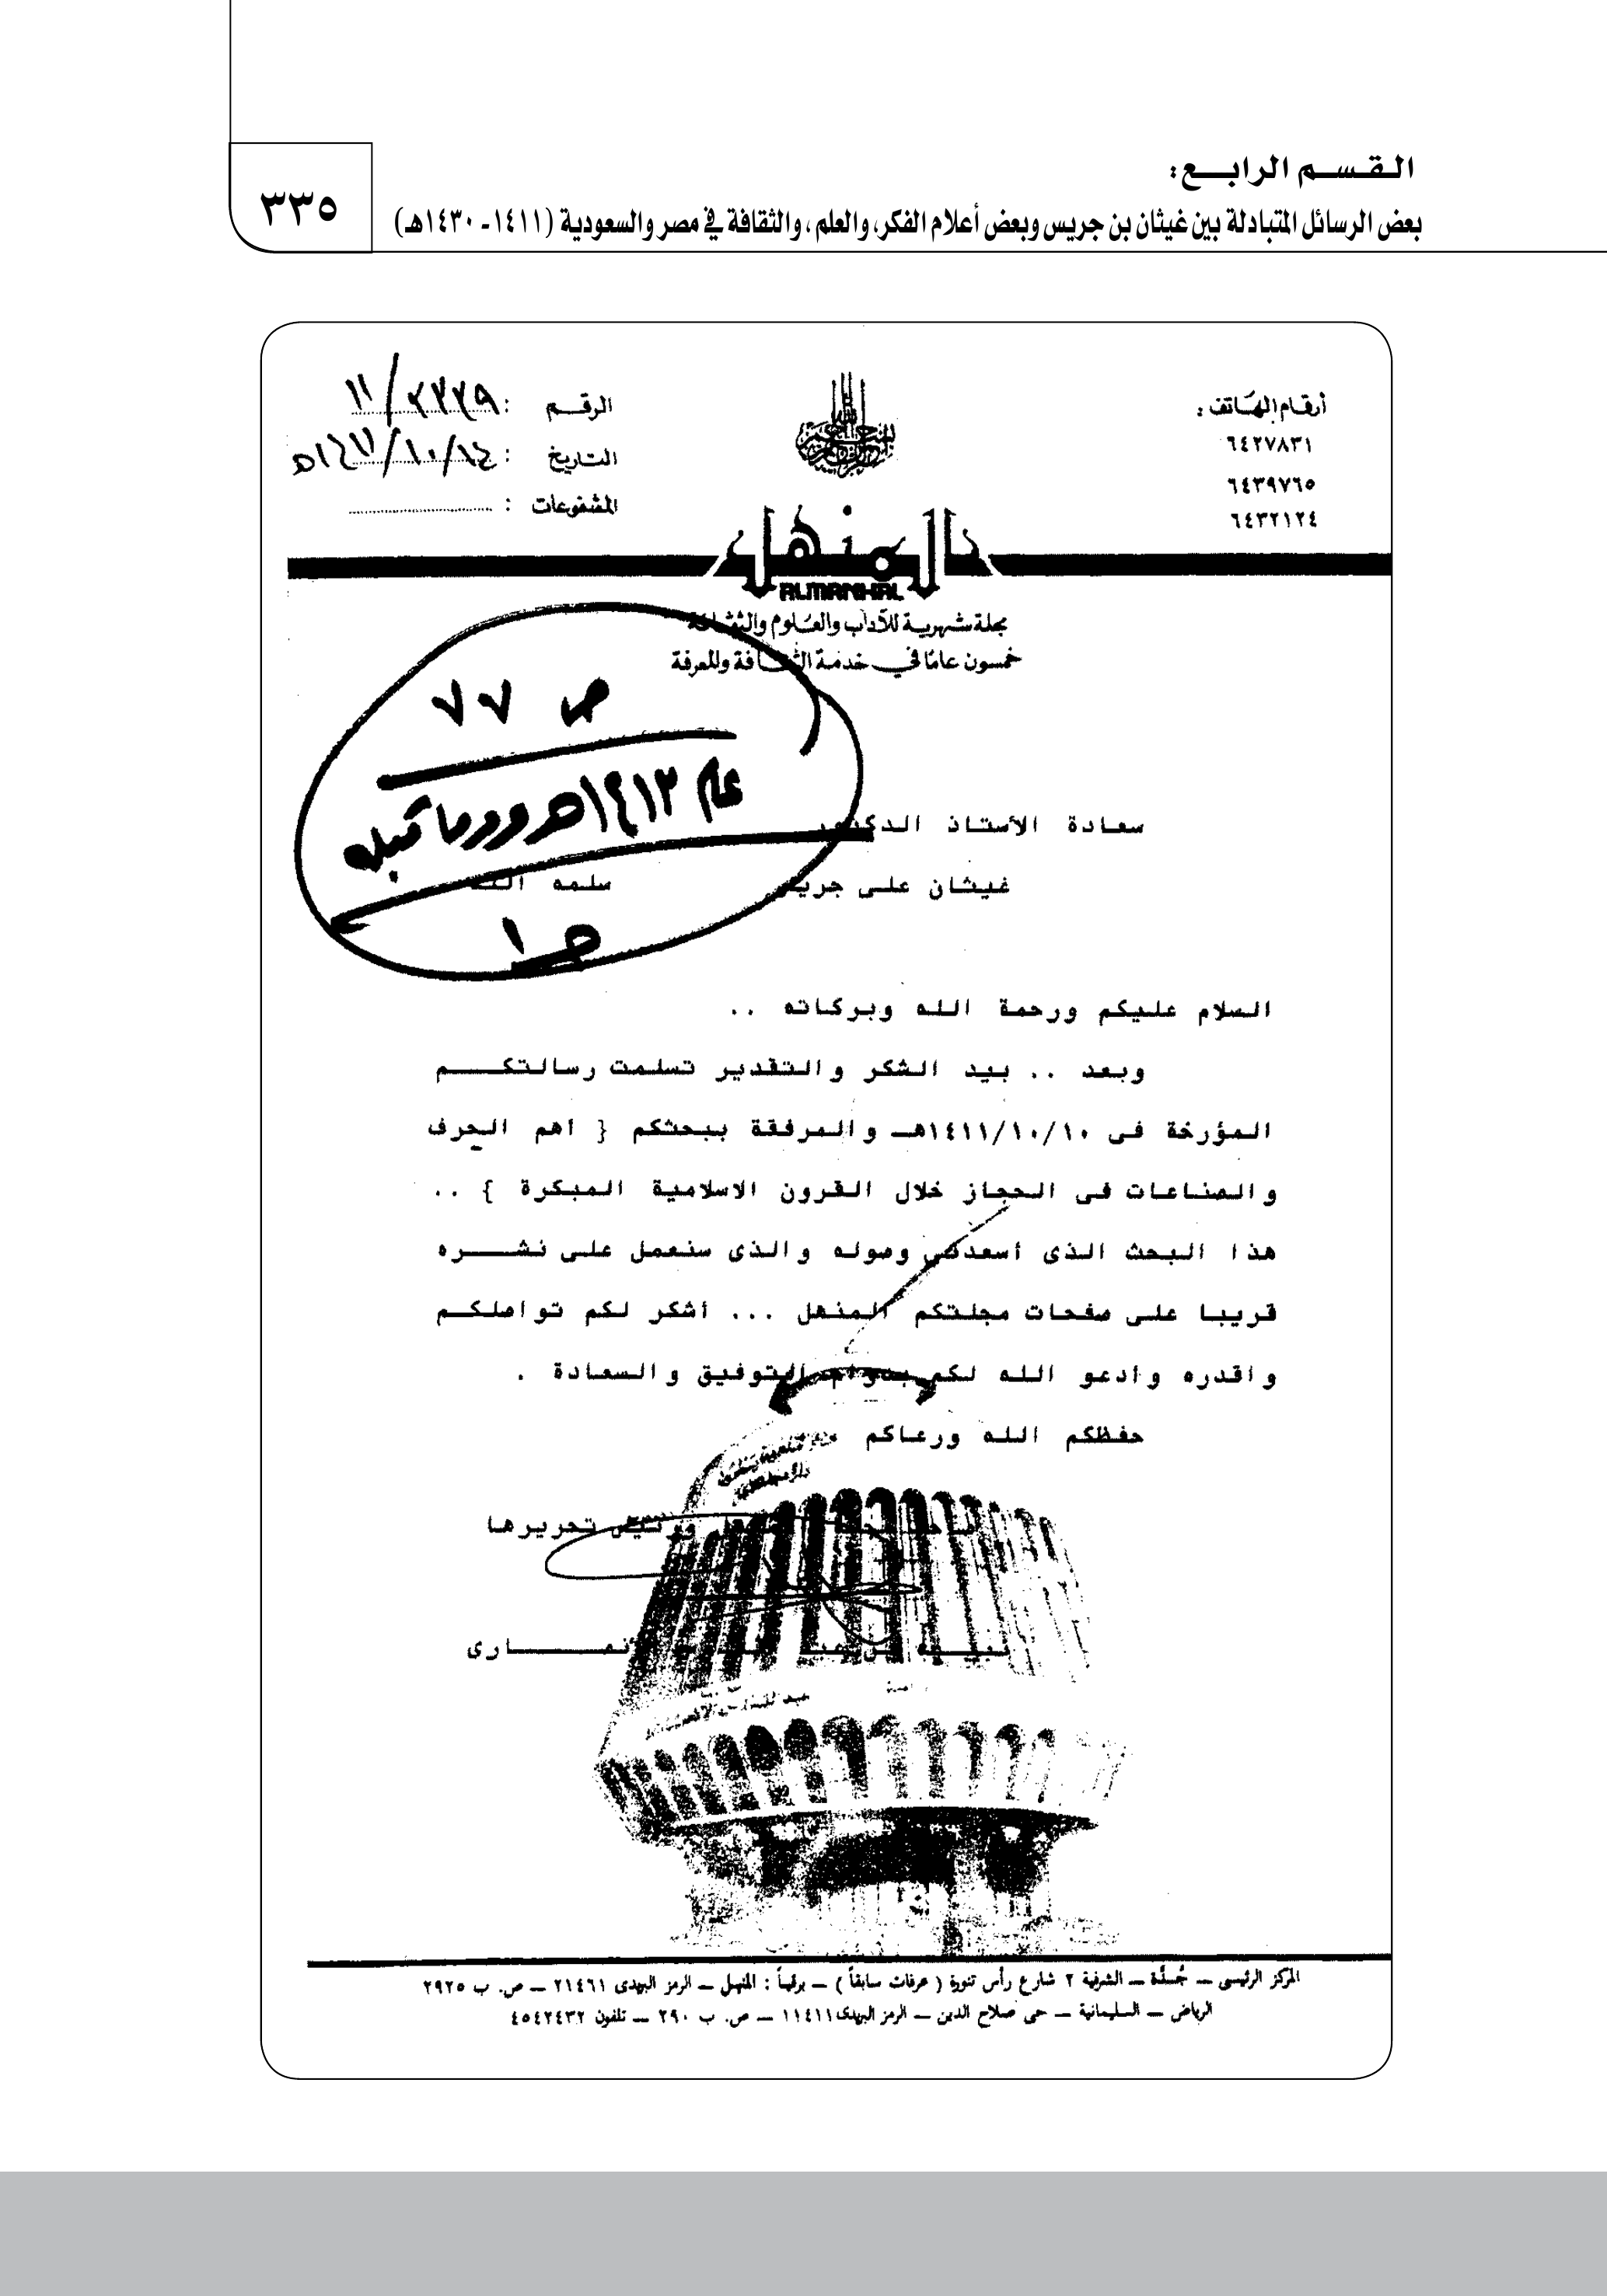 القسم الرابع:
بعض الرسائل المتبادلة بين غيثان بن جريس وبعض أعلام الفكر، والعلم، والثقافة في مصر والسعودية (١٤١١- ١٤٣٠هـ)
٣٣٥
أرقام الهاتف :
٦٤٢٧٨٣١
٦٤٣٩٧٦٥
٦٤٣٢١٢٤
الرقم : ٢٢٢٩/١١
التاريخ : ١٤/١٠/١٤١١هـ
المشفوعات :
المنهل
ALMANHAL
مجلة شهرية للآداب والعلوم والثقافة
خمسون عامًا في خدمة الثقافة والمعرفة
ص ٧٧
عام ١٤١٢هـ وما قبله
جـ ١
سعادة الأستاذ الدكتور
غيثان على جريس سلمه الله
السلام عليكم ورحمة الله وبركاته ..
وبعد .. بيد الشكر والتقدير تسلمت رسالتكـــم
المؤرخة فى ١٤١١/١٠/١٠هـ والمرفقة ببحثكم { أهم الحرف
والصناعات فى الحجاز خلال القرون الاسلامية المبكرة } ..
هذا البحث الذى أسعدنى وصوله والذى سنعمل على نشـــره
قريبا على صفحات مجلتكم المنهل ... أشكر لكم تواصلكـم
واقدره وأدعو الله لكم بدوام التوفيق والسعادة .
حفظكم الله ورعاكم
ورئيس تحريرها
المركز الرئيسى — جُـدَّة — الشرفية ٢ شارع رأس تنورة ( عرفات سابقاً ) — برقياً : المنهل — الرمز البريدى ٢١٤٦١ — ص. ب ٢٩٢٥
الرياض — السليمانية — حى صلاح الدين — الرمز البريدى ١١٤١١ — ص. ب ٢٩٠ — تلفون ٤٥٤٢٤٣٢